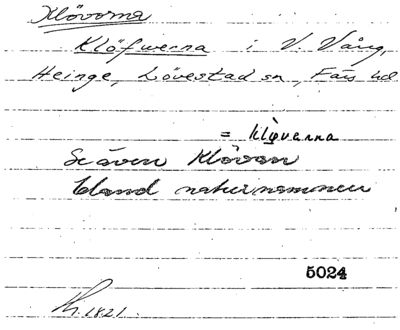 Klövorna
Klöfwerna i V. Vång,
Heinge, Lövestad sn, Färs hd
= klöverna
Se även Klövan
bland naturnamnen
5024
1821